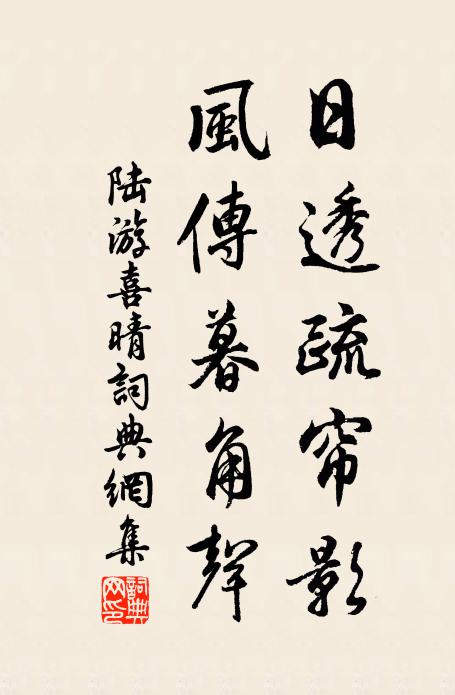 日透疏帘影
風傳暮角聲
陆游喜晴詞典網集
詞典网印